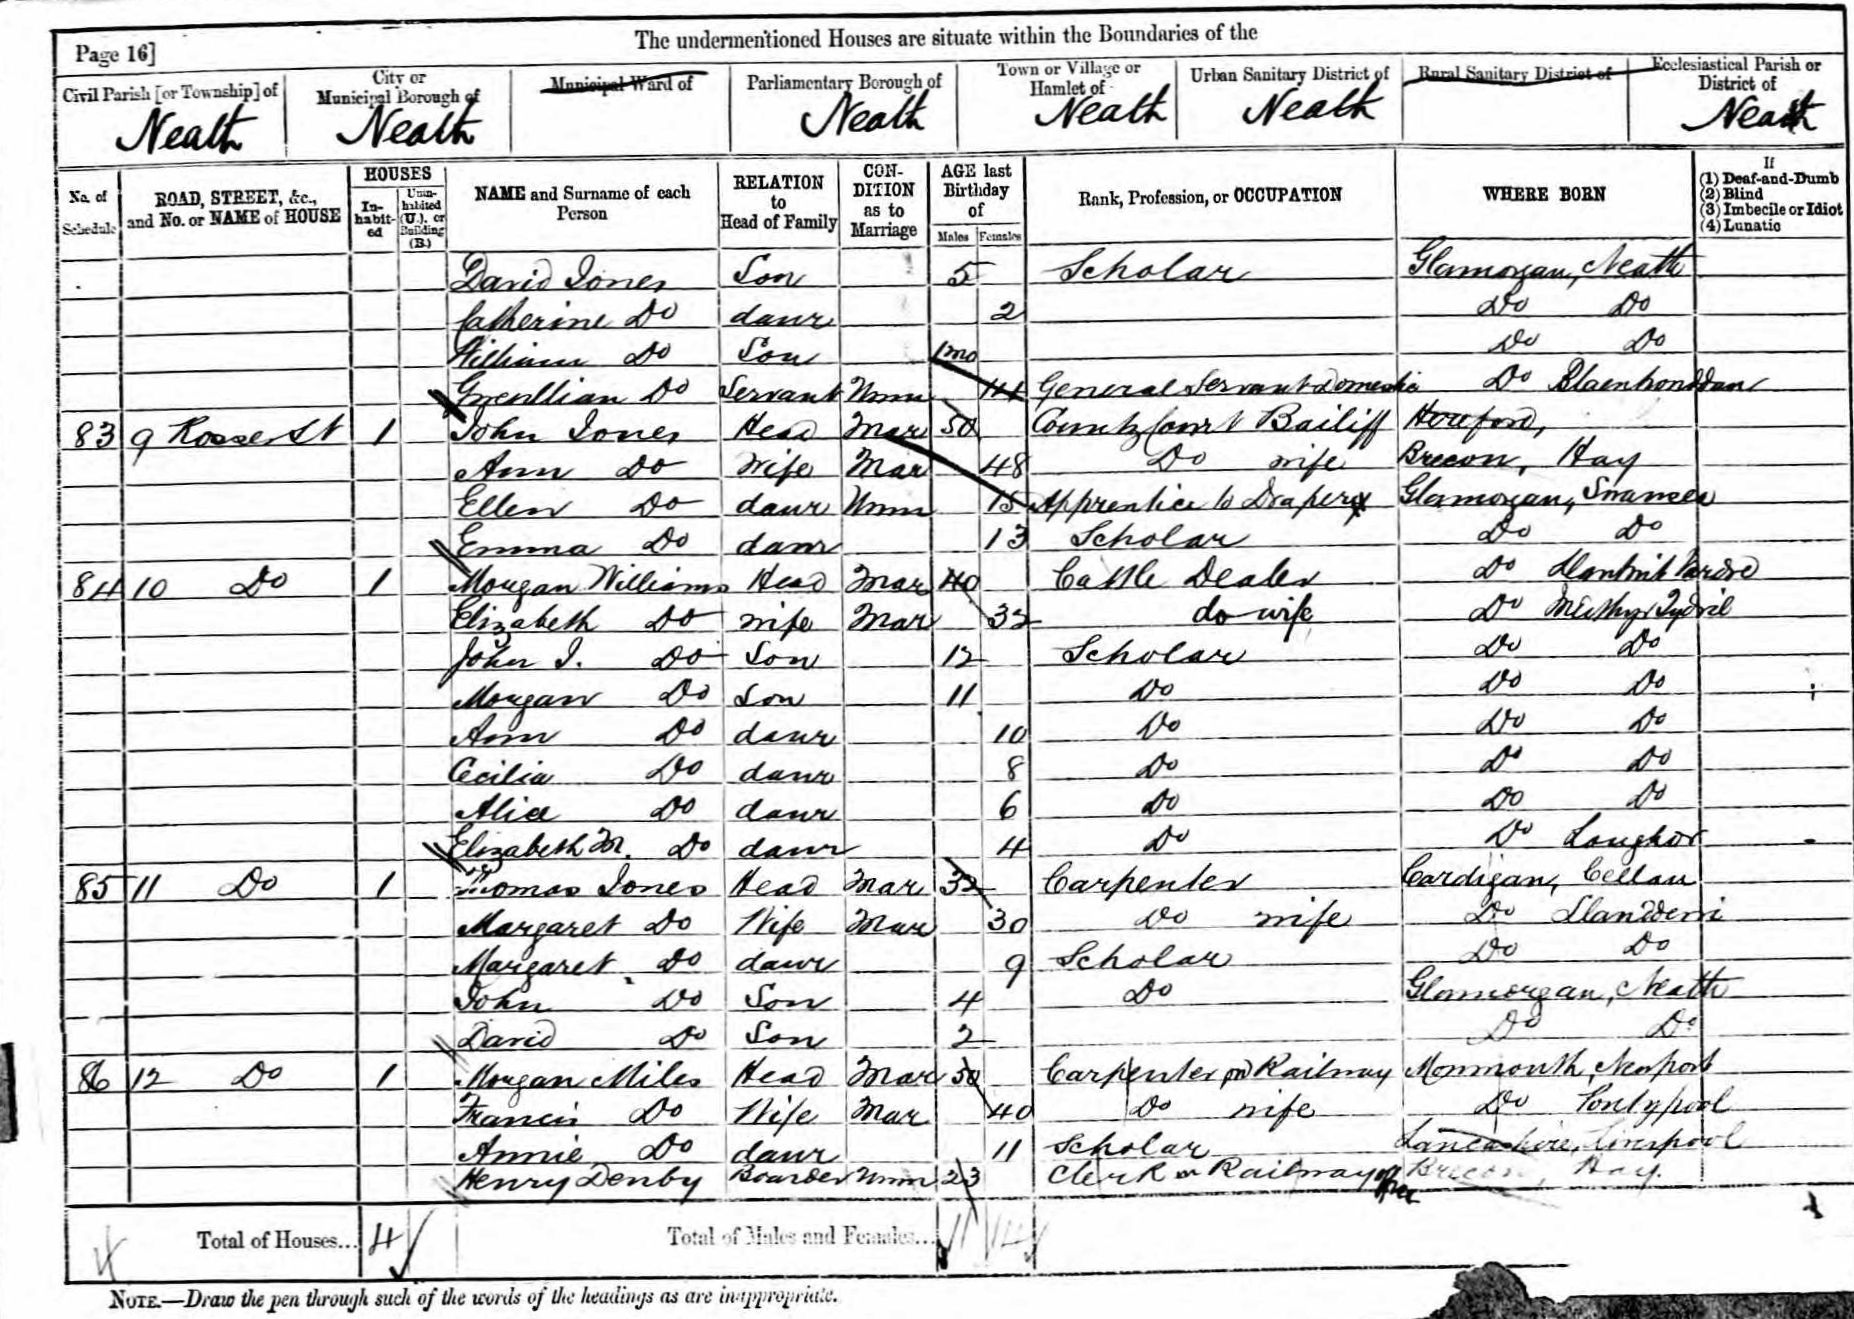 Page 16]
The undermentioned Houses are situate within the Boundaries of the
Civil Parish [or Township] of Neath
City or Municipal Borough of Neath
Municipal Ward of
Parliamentary Borough of Neath
Town or Village or Hamlet of Neath
Urban Sanitary District of Neath
Rural Sanitary District of
Ecclesiastical Parish or District of Neath
No. of Schedule
ROAD, STREET, &c., and No. or NAME of HOUSE
HOUSES
Inhabited
Uninhabited (U.), or Building (B.)
NAME and Surname of each Person
RELATION to Head of Family
CONDITION as to Marriage
AGE last Birthday of
Males Females
Rank, Profession, or OCCUPATION
WHERE BORN
If
(1) Deaf-and-Dumb
(2) Blind
(3) Imbecile or Idiot
(4) Lunatic
David Jones Son 5 Scholar Glamorgan, Neath
Catherine Do daur 2 Do Do
William Do Son 1mo Do Do
Gwenllian Do Servant Unm 44 General Servant Domestic Do
83 9 Rosser St 1 John Jones Head Mar 50 County Court Bailiff Hereford,
Ann Do Wife Mar 48 Do wife Brecon, Hay
Ellen Do daur Unm 15 Apprentice to Draper Glamorgan, Swansea
Emma Do daur 13 Scholar Do Do
84 10 Do 1 Morgan Williams Head Mar 40 Cattle Dealer Do Llantwit Vardre
Elizabeth Do wife Mar 32 do wife Do Merthyr Tydvil
John J. Do Son 12 Scholar Do Do
Morgan Do Son 11 Do Do Do
Ann Do daur 10 Do Do Do
Cecilia Do daur 8 Do Do Do
Alice Do daur 6 Do Do Do
Elizabeth M. Do daur 4 Do Do Loughor
85 11 Do 1 Thomas Jones Head Mar 32 Carpenter Cardigan, Cellan
Margaret Do Wife Mar 30 Do wife Do Llanddewi
Margaret Do daur 9 Scholar Do Do
John Do Son 4 Do Glamorgan, Neath
David Do Son 2 Do Do
86 12 Do 1 Morgan Miles Head Mar 50 Carpenter on Railway Monmouth, Newport
Francis Do Wife Mar 40 Do wife Do Pontypool
Annie Do daur 11 Scholar Lancashire, Liverpool
Henry Denby Boarder Unm 23 Clerk on Railway Brecon, Hay.
4 Total of Houses... 4
Total of Males and Females... 11 14
NOTE.—Draw the pen through such of the words of the headings as are inappropriate.